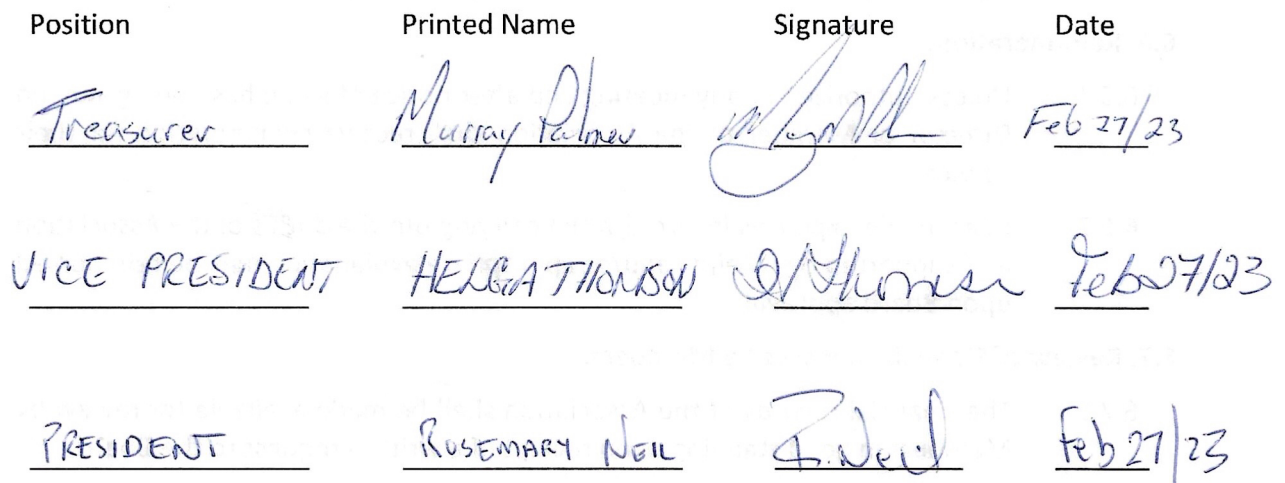 Position Printed Name Signature Date
Treasurer Murray Palmer Feb 27/23
VICE PRESIDENT HELGA THOMSON H Thomson Feb 27/23
PRESIDENT ROSEMARY NEIL R. Neil Feb 27/23